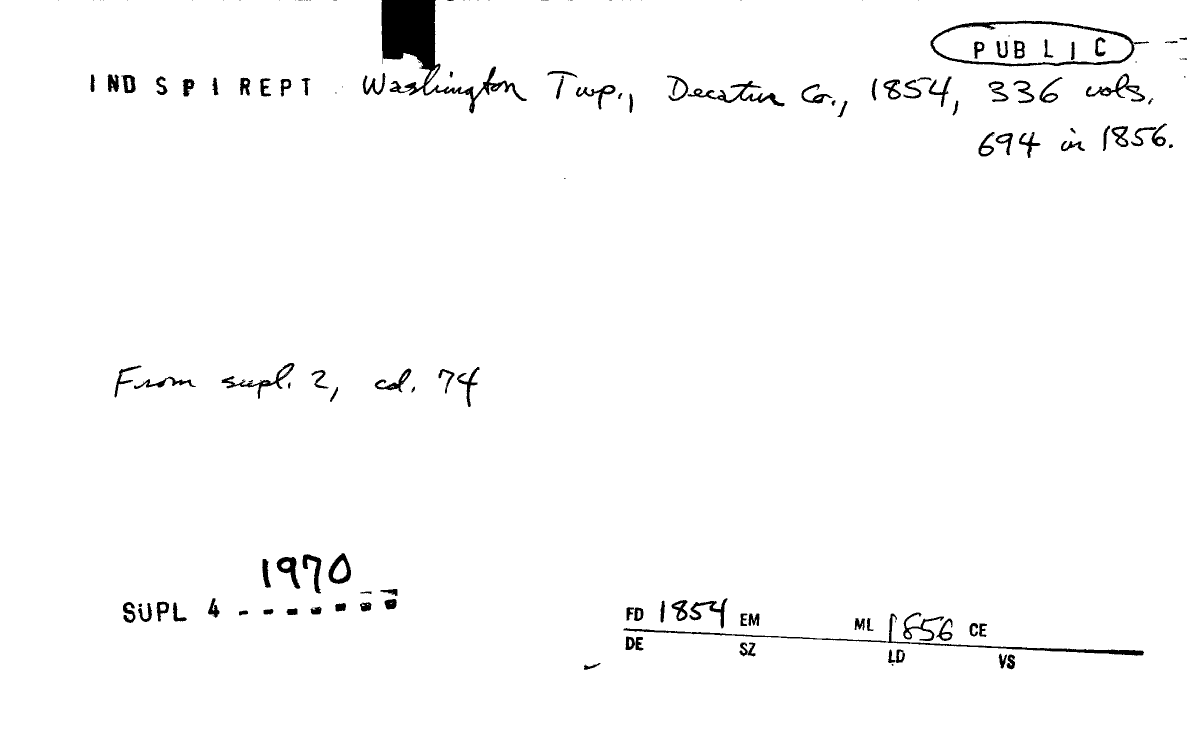 PUBLIC
INDSPIREPT Washington Twp., Decatur Co., 1854, 336 vols.
694 in 1856.
From supl. 2, col. 74
1970
SUPL 4 -------
FD 1854 EM ML 1856 CE
DE SZ LD VS